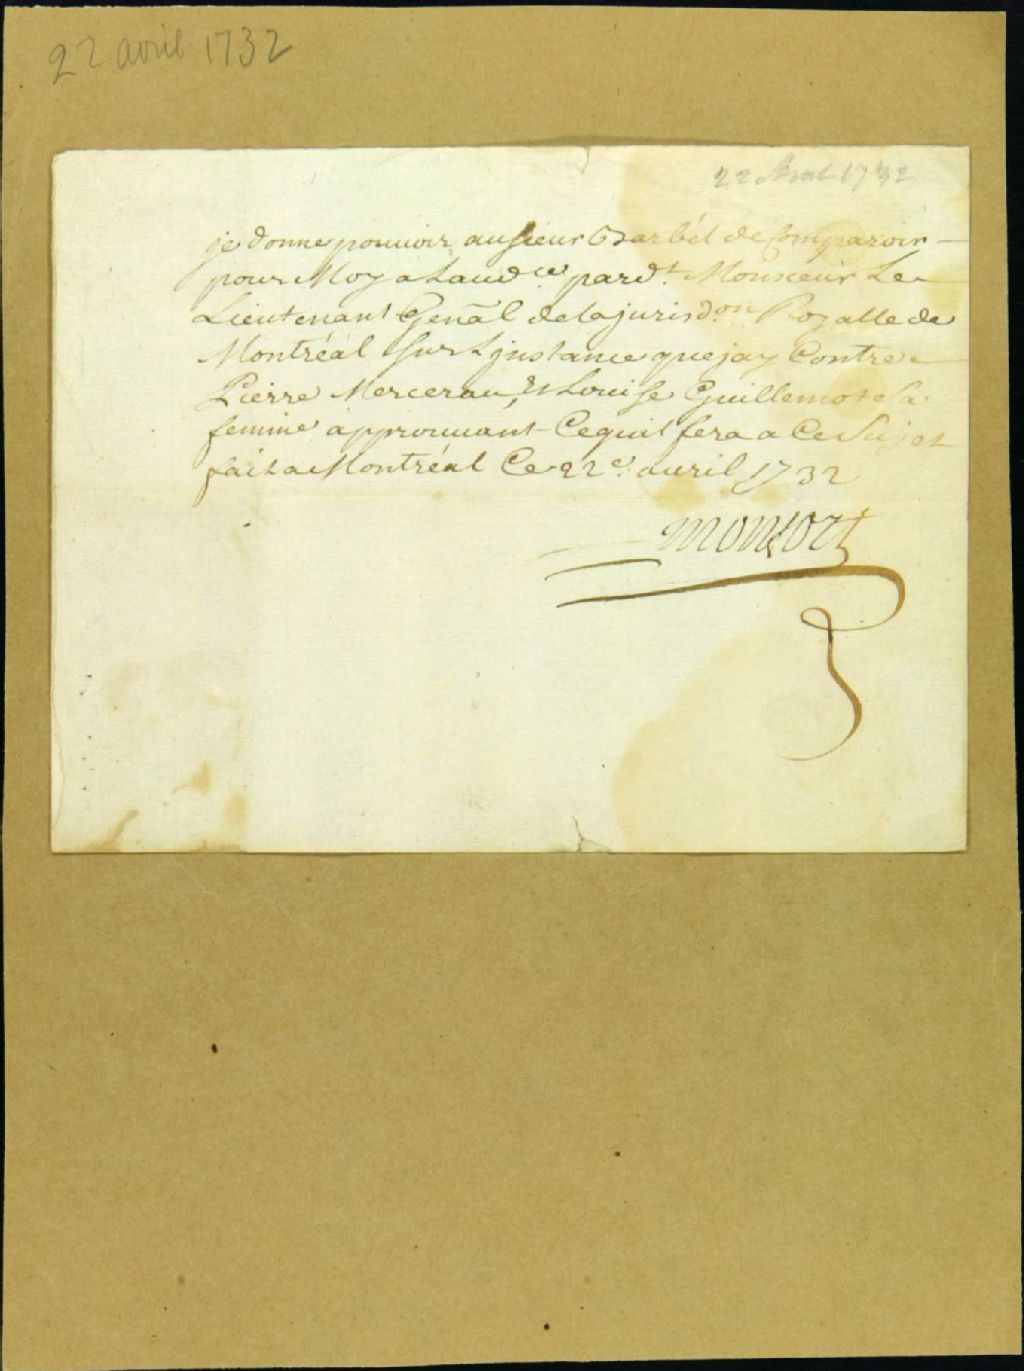 22 avril 1732
22 Avril 1732
je donne pouvoir au sieur Barbel de Comparoir
pour Moy a Laudce pardt. Monsieur Le
Lieutenant Genãl delajurisdon Royalle de
Montréal sur Linstance que jay Contre
Pierre Mercerau, et Louisse Guillemot Sa
femme approuuant Cequil fera a Ce Sujet
fait a Montréal Ce 22e auril 1732
montort